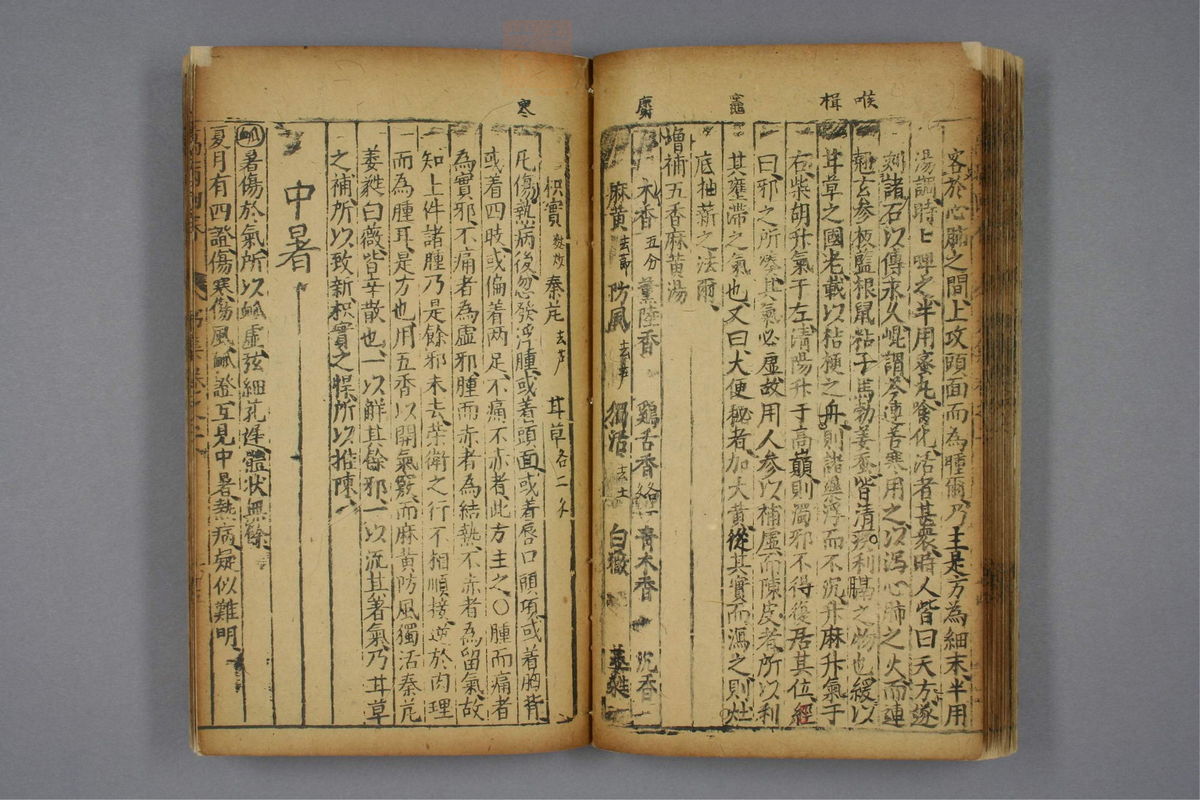 喉
楫
竈
麝
客於心肺之間上攻頭面而為腫爾乃主是方為細末半用
湯調時〻呷之半用蜜丸噙化活者甚衆時人皆曰天方遂
刻諸石以傳永久崐謂芩連苦寒用之以瀉心肺之火而連
翹玄參板藍根鼠粘子馬勃姜蚕皆清疾利膈之物也緩以
甘草之國老載以桔梗之舟則諸藥浮而不沉升麻升氣于
右柴胡升氣于左清陽升于高巔則濁邪不得復居其位經
曰邪之所湊其氣必虛故用人參以補虛而陳皮者所以利
其壅滯之氣也又曰大便秘者加大黃從其實而瀉之則灶
底抽薪之法爾
增補五香麻黃湯
木香五分 薰陸香 鷄舌香 各一 青木香 沉香
麻黃去節 防風去芦 獨活去土 白薇 萎蕤
寒
枳實麩炒 秦艽去芦 甘草各二
凡傷熱病後忽發浮腫或着頭面或着唇口頭項或着胸背
或着四肢或偏着两足不痛不赤者此方主之○腫而痛者
為實邪不痛者為虛邪腫而赤者為結熱不赤者為留氣故
知上件諸腫乃是餘邪未去荣衛之行不相順接逆於肉理
而為腫耳是方也用五香以開氣竅而麻黃防風獨活秦艽
萎蕤白薇皆辛散也一以鮮其餘邪一以流其著氣乃甘草
之補所以致新枳實之悍所以推陳
中暑
暑傷於氣所以虛弦細芤遲體状無餘
夏月有四證傷寒傷風證互見中暑熱病疑似難明